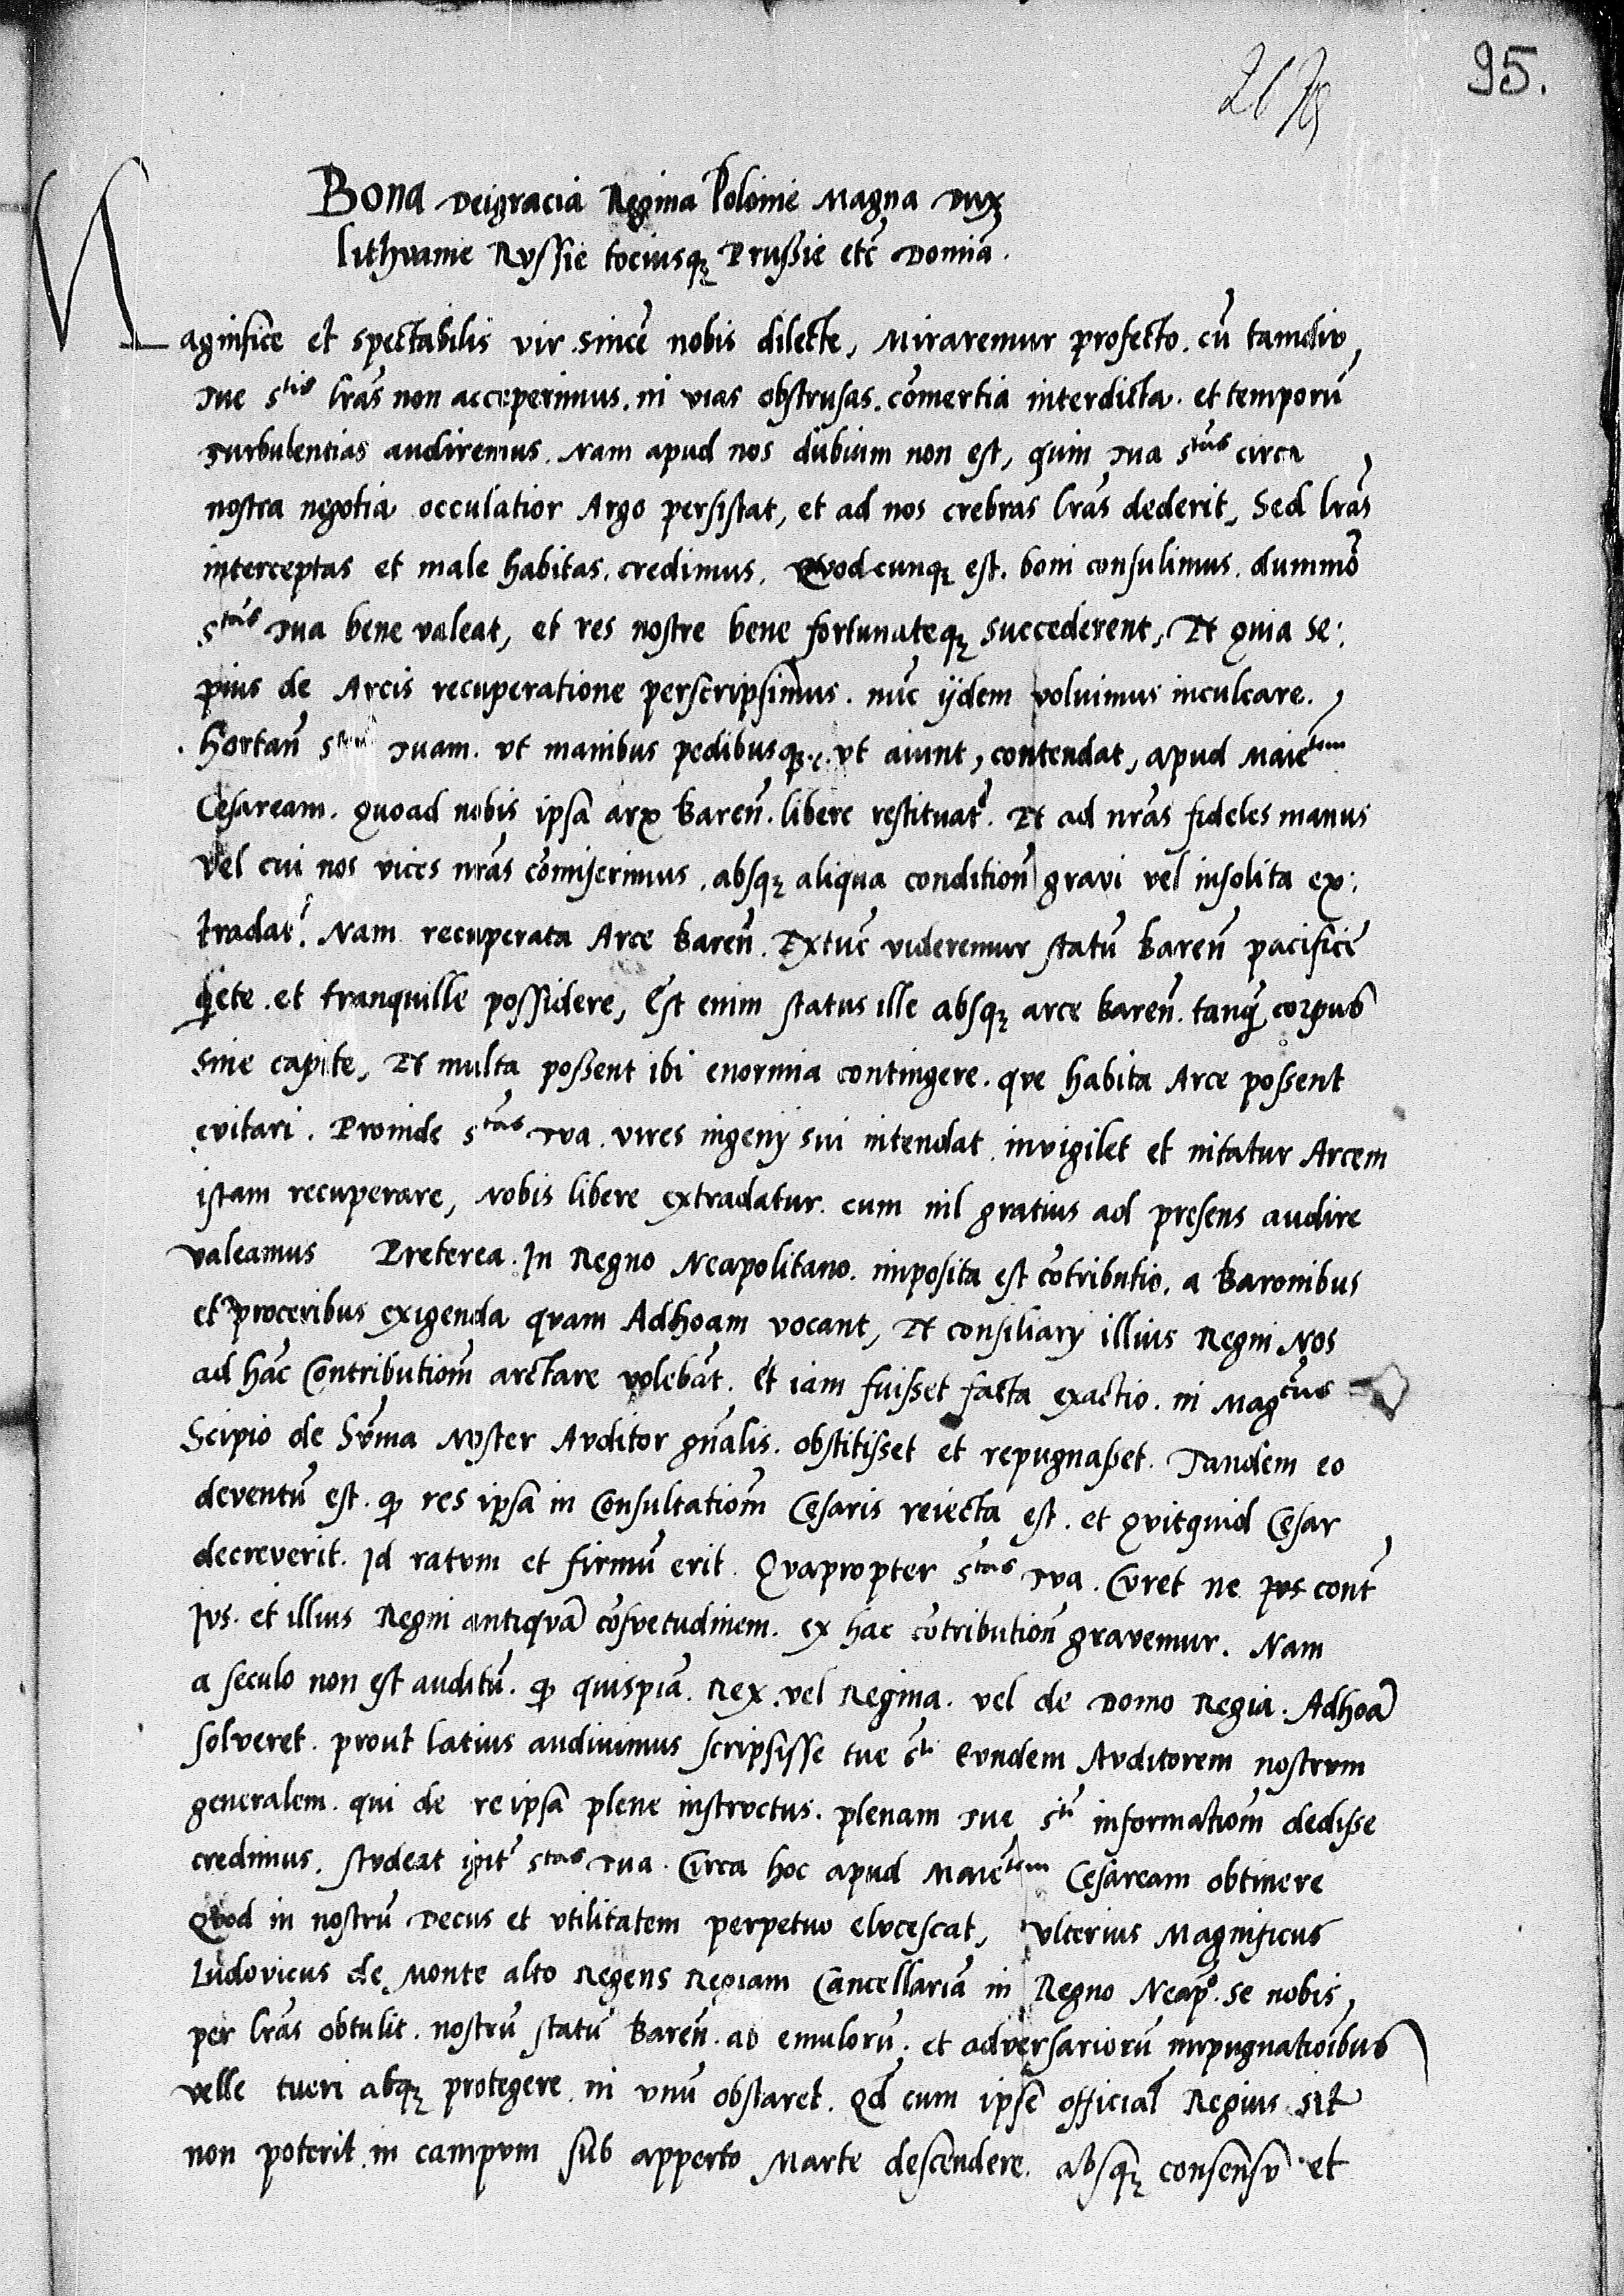 95.
Bona Deigracia Regina Polonie Magna Dux
lithvanie Rvssie tociusqȝ Prussie etc̄ Domiā.
Maginfice et spectabilis vir sincē nobis dilecte, Miraremur profecto. cū tamdiv
Tue s^tis lrās non acceperimus. ni vias obstrusas. cōmertia interdicta. et temporū
Turbulentias audiremus. Nam apud nos dubium non est, quin Tua s^tas circa
nostra negotia occulatior Argo persistat, et ad nos crebras lrās dederit, Sed lrās
interceptas et male habitas. credimus. Qvodcunqȝ est. boni consulimus. dummō
s^tas Tua bene valeat, et res nostre bene fortunateqȝ succederent, Et quia se:
pius de Arcis recuperatione perscripsimus. nūc ijdem voluimus inculcare.
Hortan̄ s^tem Tuam. vt manibus pedibusqȝ. vt aiunt, contendat, apud Maie^tem
Cesaream. quoad nobis ipsa arx Baren̄. libere restituat^r. Et ad nrās fideles manus
vel cui nos vices nrās cōmiserimus. absqȝ aliqua condition̄ gravi vel insolita ex:
tradat^r. Nam recuperata Arce Baren̄. Extūc videremur statū Baren̄ pacificē
qiete. et tranquille possidere, Est enim status ille absqȝ arce Baren̄. tanq̄ corpus
sine capite, Et multa possent ibi enormia contingere. que habita Arce possent
evitari. Proinde s^tas Tua. vires ingenij sui intendat. invigilet et nitatur Arcem
istam recuperare, Nobis libere extradatur. cum nil gratius ad presens audire
valeamus Preterea. In Regno Neapolitano. imposita est cōtributio. a Baronibus
et proceribus exigenda quam Adhoam vocant, Et consiliarij illius Regni Nos
ad hāc Contributionm̄ arctare volebāt. Et iam fuisset facta exactio. ni Mag^cus
Scipio de Sv̄ma Noster Avditor gn̄alis. obstitisset et repugnasset. Tandem eo
deventū est. qꝫ res ipsa in Consultationm̄ Cesaris reiecta est. et qvitquid Cesar
decreverit. Id ratvm et firmū erit. Qvapropter s^tas Tva. Cvret ne Jvs cont^r
Jvs. et illius Regni antiqvā cōsvetudinem. ex hac cōtribution̄ gravemur. Nam
a seculo non est auditū. qꝫ quispiā. Rex. vel Regina. vel de Domo Regia. Adhoā
solveret. prout latius audivimus scripsisse tue s^ti Evndem Avditorem nostrvm
generalem. qui de re ipsa plene instrvctus. plenam Tue s^ti informationm̄ dedisse
credimus. stvdeat igit^r s^tas Tua. Circa hoc apud Maie^tem Cesaream obtinere
Qvod in nostrū Decus et vtilitatem perpetuo elvcescat, vlterius Magnificus
Ludovicus de Monte alto Regens Regiam Cancellariā in Regno Neap^o. se nobis,
per lrās obtulit. nostrū statū Baren̄. ab emulorū. et adversariorū impugnatioībus
velle tveri atqȝ protegere. ni vnū obstaret. Qd̄ cum ipse official̄ Regius sit
non poterit in campvm sub apperto Marte descendere. absqȝ consensv et